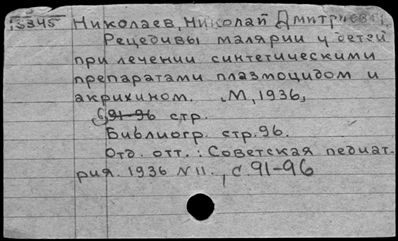 13345 Николаев, Николай Дмитриевич
Рецедивы малярии у детей
при лечении синтетическими
препаратами плазмоцидом и
акрихином. М, 1936,
91-96 стр.
Библиогр. стр. 96.
Отд. отт.: Советская педиат.
рия. 1936 N 11., с. 91-96